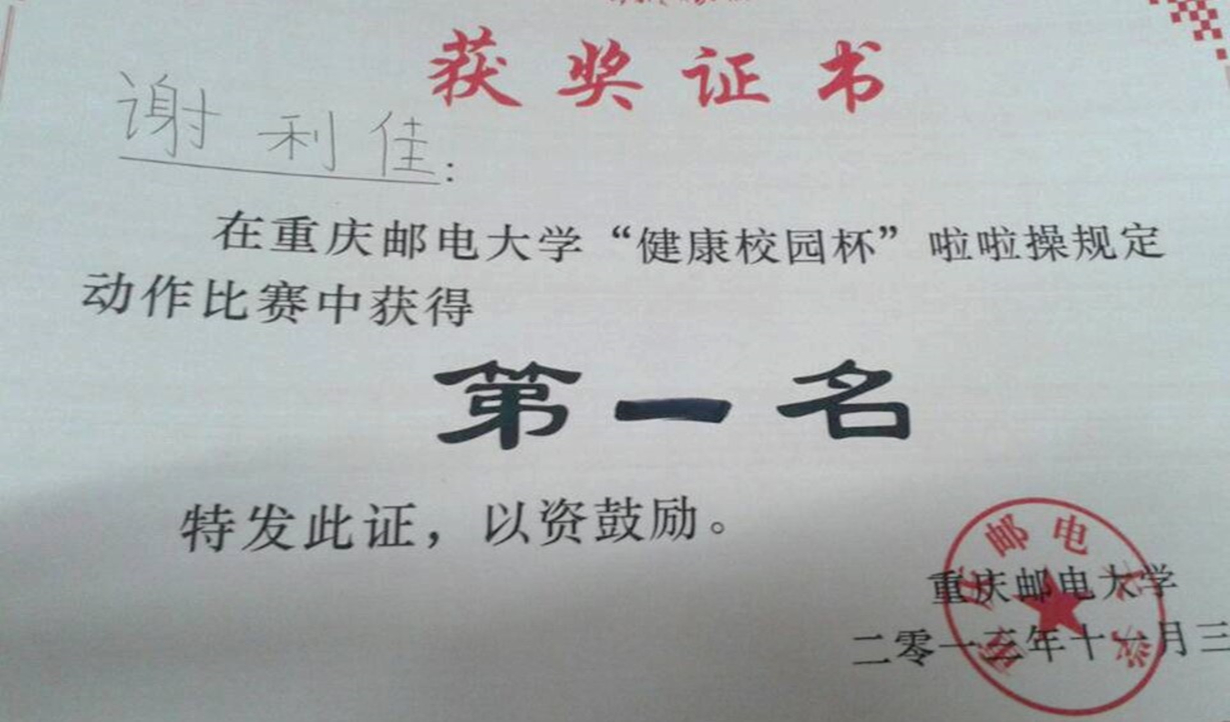 获奖证书
谢利佳:
在重庆邮电大学“健康校园杯”啦啦操规定
动作比赛中获得
第一名
特发此证，以资鼓励。
重庆邮电大学
二零一三年十一月三